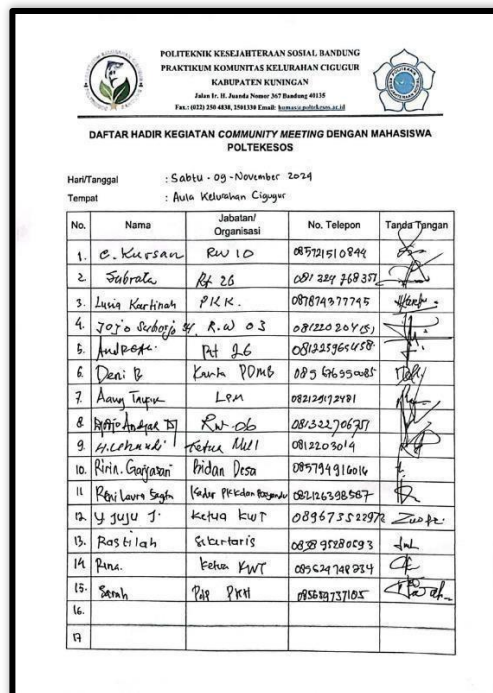 POLITEKNIK KESEJAHTERAAN SOSIAL BANDUNG
PRAKTIKUM KOMUNITAS KELURAHAN CIGUGUR
KABUPATEN KUNINGAN
Jalan Ir. H. Juanda Nomor 367 Bandung 40135
Fax.: (022) 250 4838, 2501330 Email: humas@poltekesos.ac.id
DAFTAR HADIR KEGIATAN COMMUNITY MEETING DENGAN MAHASISWA
POLTEKESOS
Hari/Tanggal : Sabtu - 09 - November 2024
Tempat : Aula Kelurahan Cigugur
No. Nama Jabatan/Organisasi No. Telepon Tanda Tangan
1. C. Kursan RW 10 085721510844
2. Subrata Rt 26
3. Lusia Kartinah PKK. 087874377745
4. Jojo R.W 03
5. Rt 26
6. Deni B Karta
7. Aang 082129172481
8. RW-06
9. Ketua MUI 0812203014
10. Ririn. Bidan Desa 085794916016
11 Reni Laura Kader PKK dan Posyandu 082126398587
12 Y Juju J. Ketua KWT 089673522972
13. Rastilah Sekertaris 083895280593
14 Rina. Ketua KWT 085624748234
15. Sarah PKH 085659737105
16.
17